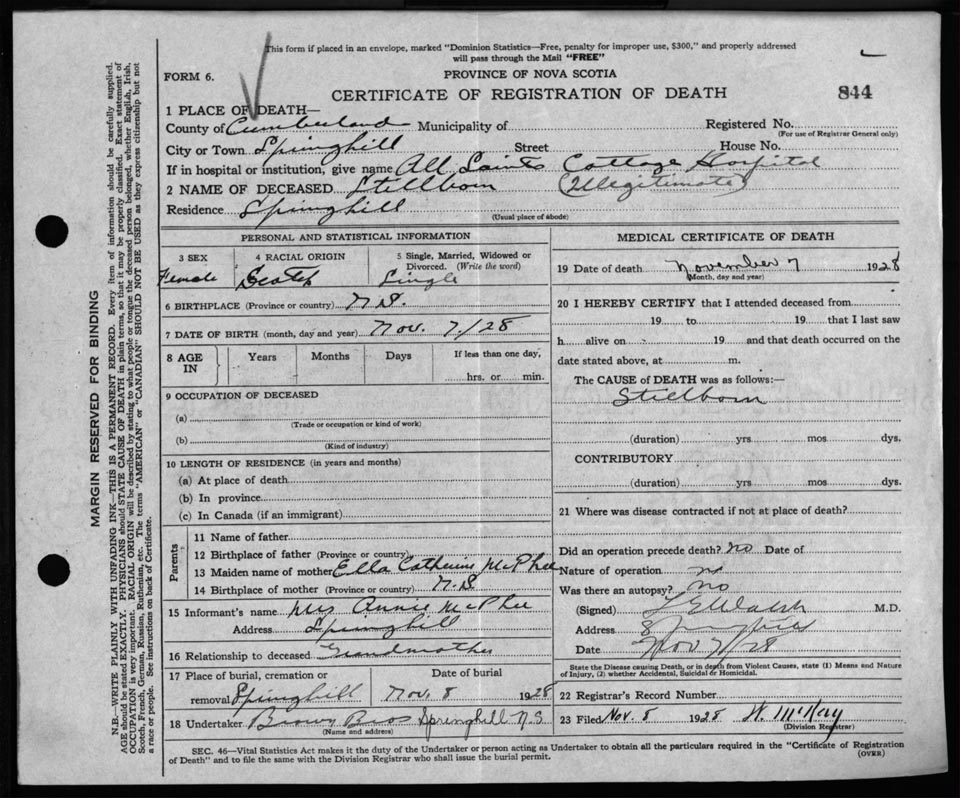 This form if placed in an envelope, marked "Dominion Statistics—Free, penalty for improper use, $300," and properly addressed
will pass through the Mail "FREE"
FORM 6.
PROVINCE OF NOVA SCOTIA
CERTIFICATE OF REGISTRATION OF DEATH
844
1 PLACE OF DEATH—
County of Cumberland Municipality of Registered No.
(For use of Registrar General only)
City or Town Springhill Street House No.
If in hospital or institution, give name All Saints Cottage Hospital
2 NAME OF DECEASED Stillborn (Illegitimate)
Residence Springhill
(Usual place of abode)
PERSONAL AND STATISTICAL INFORMATION
3 SEX
Female
4 RACIAL ORIGIN
Scotch
5 Single, Married, Widowed or
Divorced. (Write the word)
Single
6 BIRTHPLACE (Province or country) N.S.
7 DATE OF BIRTH (month, day and year) Nov. 7/28
8 AGE IN
Years Months Days
If less than one day,
hrs. or min.
9 OCCUPATION OF DECEASED
(a)
(Trade or occupation or kind of work)
(b)
(Kind of industry)
10 LENGTH OF RESIDENCE (in years and months)
(a) At place of death
(b) In province
(c) In Canada (if an immigrant)
Parents
11 Name of father
12 Birthplace of father (Province or country)
13 Maiden name of mother Ella Catherine McPhee
14 Birthplace of mother (Province or country) N.S.
15 Informant's name Mrs Annie McPhee
Address Springhill
16 Relationship to deceased Grandmother
17 Place of burial, cremation or Date of burial
removal Springhill Nov. 8 1928
18 Undertaker Brown Bros Springhill N.S.
(Name and address)
MEDICAL CERTIFICATE OF DEATH
19 Date of death November 7 1928
(Month, day and year)
20 I HEREBY CERTIFY that I attended deceased from
19 to 19 that I last saw
h alive on 19 and that death occurred on the
date stated above, at m.
The CAUSE of DEATH was as follows:—
Stillborn
(duration) yrs mos dys.
CONTRIBUTORY
(duration) yrs mos dys.
21 Where was disease contracted if not at place of death?
Did an operation precede death? no Date of
Nature of operation no
Was there an autopsy? no
(Signed) Walsh M.D.
Address Springhill
Date Nov 7/28
State the Disease causing Death, or in death from Violent Causes, state (1) Means and Nature
of Injury, (2) whether Accidental, Suicidal or Homicidal.
22 Registrar's Record Number
23 Filed Nov. 8 1928 W. McKay
(Division Registrar)
SEC. 46—Vital Statistics Act makes it the duty of the Undertaker or person acting as Undertaker to obtain all the particulars required in the "Certificate of Registration
of Death" and to file the same with the Division Registrar who shall issue the burial permit.
(OVER)
MARGIN RESERVED FOR BINDING
N.B.—WRITE PLAINLY WITH UNFADING INK—THIS IS A PERMANENT RECORD. Every item of information should be carefully supplied.
AGE should be stated EXACTLY. PHYSICIANS should STATE CAUSE OF DEATH in plain terms, so that it may be properly classified. Exact statement of
OCCUPATION is very important. RACIAL ORIGIN will be described by stating to what people or tongue the deceased person belonged, whether English, Irish,
Scotch, French, German, Russian, Ruthenian, etc. The terms "AMERICAN" or "CANADIAN" SHOULD NOT BE USED as they express citizenship but not
a race or people. See instructions on back of Certificate.